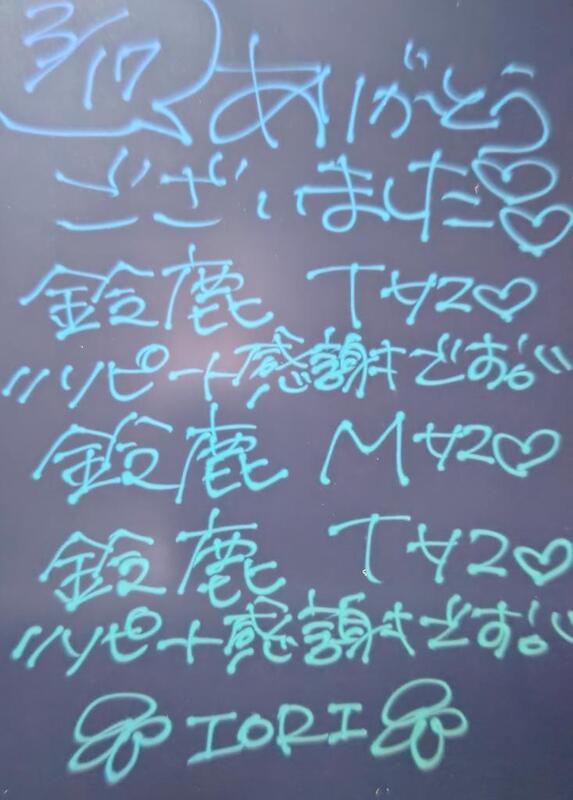 3/17
ありがとう
ございました♡♡
鈴鹿 Tサマ♡
〃リピート感謝です。〃
鈴鹿 Mサマ♡
鈴鹿 Tサマ♡
〃リピート感謝です。〃
IORI